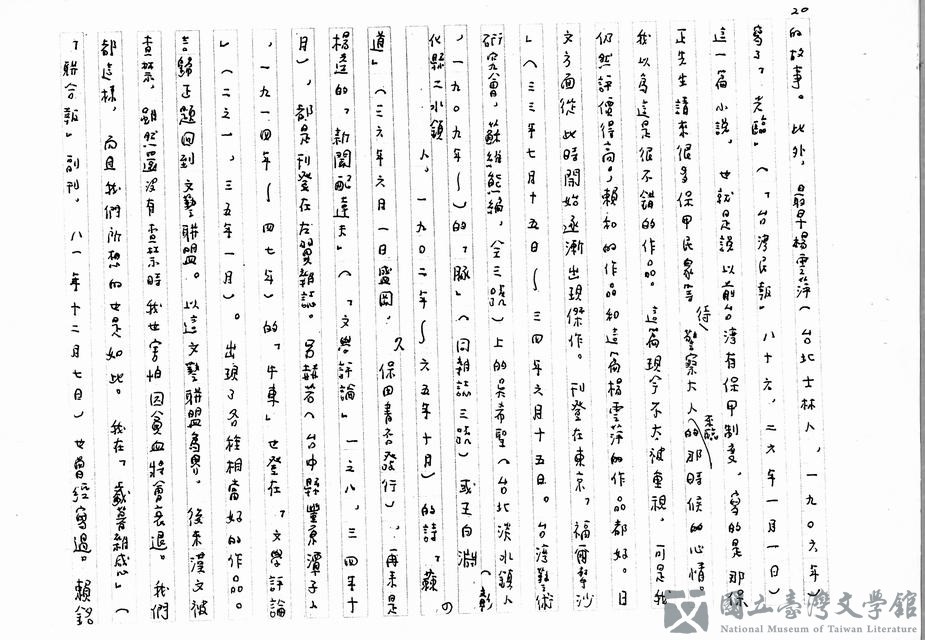 20
的故事。此外,最早楊雲萍(台北士林人,一九〇六年)
寫了「光臨」(「台灣民報」八十六,二六年一月一日)
這一篇小說,也就是說以前台灣有保甲制度,寫的是那保
正先生請來很多保甲民象等待警察大人來臨的那時候的心情。
我以為這是很不錯的作品。這篇現今不大被重視,可是我
仍然評價得高;賴和的作品和這篇楊雲萍的作品都好。日
文方面從此時開始逐漸出現傑作。刊登在東京「福爾摩沙
」(三三年七月十五日~三四年六月十五日。台灣藝術
研究會,蘇維熊編,全三號)上的吳希聖(台北淡水鎮人
,一九〇九年~)的「豚」(同雜誌三號)或王白淵(彰
化縣二水鎮人,一九〇二年~六五年十月)的詩「蕀の
道」(三六年六月一日盛岡,久保田書店發行),再來是
楊逵的「新聞配達夫」(「文學評論」一之八,三四年十
月),都是刊登在左翼雜誌。呂赫若(台中縣豐原潭子人
,一九一四年~四七年)的「牛車」也登在「文學評論
」(二之一,三五年一月)。出現了各種相當好的作品。
言歸正題回到文藝聯盟。以這文藝聯盟為界。後來漢文被
查禁,雖然還沒有查禁時我也害怕因貧血將會衰退。我們
都這樣,而且我們所想的也是如此。我在「歲暮雜感」(
「聯合報」副刊,八一年十二月七日)也曾經寫過。賴銘
國立臺灣文學館
National Museum of Taiwan Literature